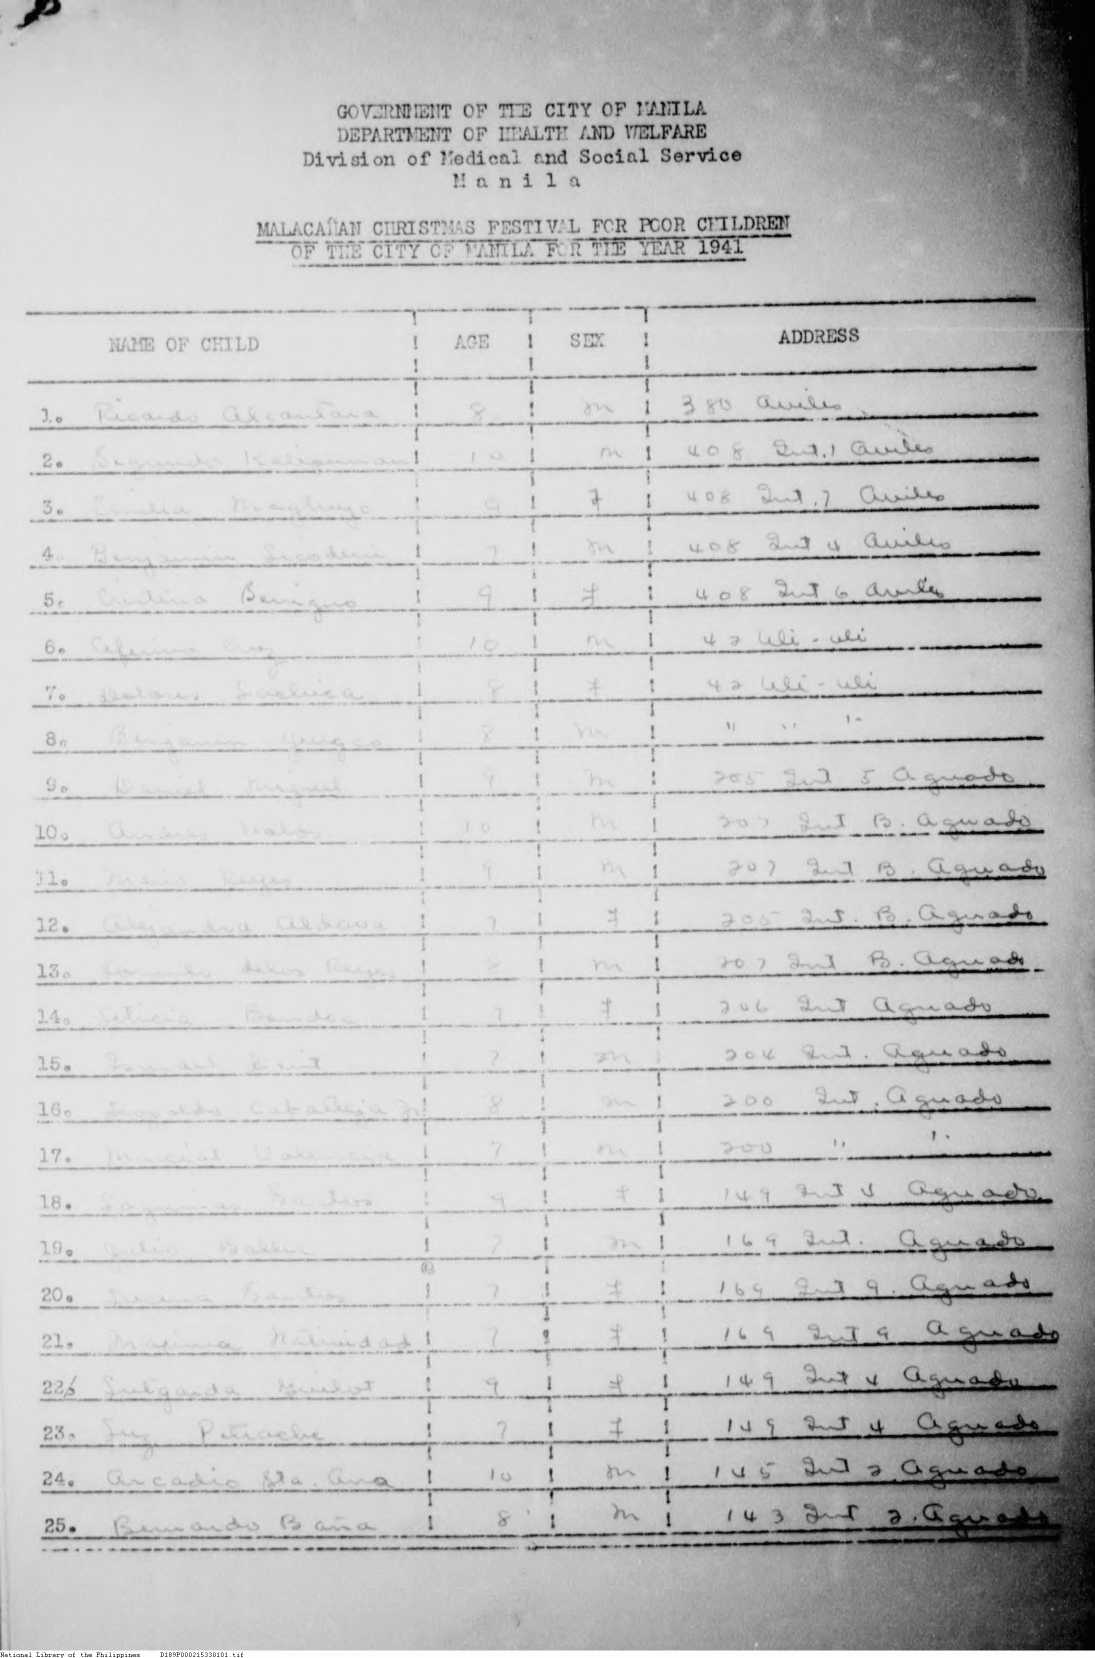 GOVERNMENT OF THE CITY OF MANILA
DEPARTMENT OF HEALTH AND WELFARE
Division of Medical and Social Service
M a n i l a
MALACAÑAN CHRISTMAS FESTIVAL FOR POOR CHILDREN
OF THE CITY OF MANILA FOR THE YEAR 1941
NAME OF CHILD AGE SEX ADDRESS
1. Ricardo Alcantara 8 M 380 Aviles
2. Segundo 10 M 408 Int. 1 Aviles
3. 9 F 408 Int. 7 Aviles
4. Benjamin 7 M 408 Int 4 Aviles
5. Cristina Benigno 9 F 408 Int 6 Aviles
6. Ceferino Cruz 10 M 42 Uli-uli
7. Dolores 8 F 42 Uli-uli
8. Benjamin 8 M " " "
9. Daniel Miguel 9 M 205 Int 5 Aguado
10. Andres 10 M 207 Int B. Aguado
11. Mario Reyes 9 M 207 Int B. Aguado
12. Alejandra Aldaba 7 F 205 Int. B. Aguado
13. delos Reyes 8 M 207 Int B. Aguado
14. Leticia 7 F 206 Int Aguado
15. 7 M 204 Int. Aguado
16. Leopoldo Jr. 8 M 200 Int. Aguado
17. Marcial Valencia 7 M 200 " "
18. Santos 9 F 149 Int 4 Aguado
19. Julio 7 M 169 Int. Aguado
20. Santos 7 F 169 Int 9. Aguado
21. Maxima Natividad 7 F 169 Int 9 Aguado
22. 9 F 149 Int 4 Aguado
23. Luz Petrache 7 F 149 Int 4 Aguado
24. Arcadio Sta. Ana 10 M 145 Int 2 Aguado
25. Bernardo Baña 8 M 143 Int 2. Aguado
National Library of the Philippines D189P000215330101.tif